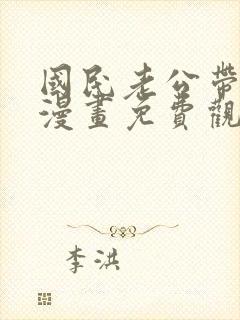 國民老公帶
漫畫免費觀
李洪